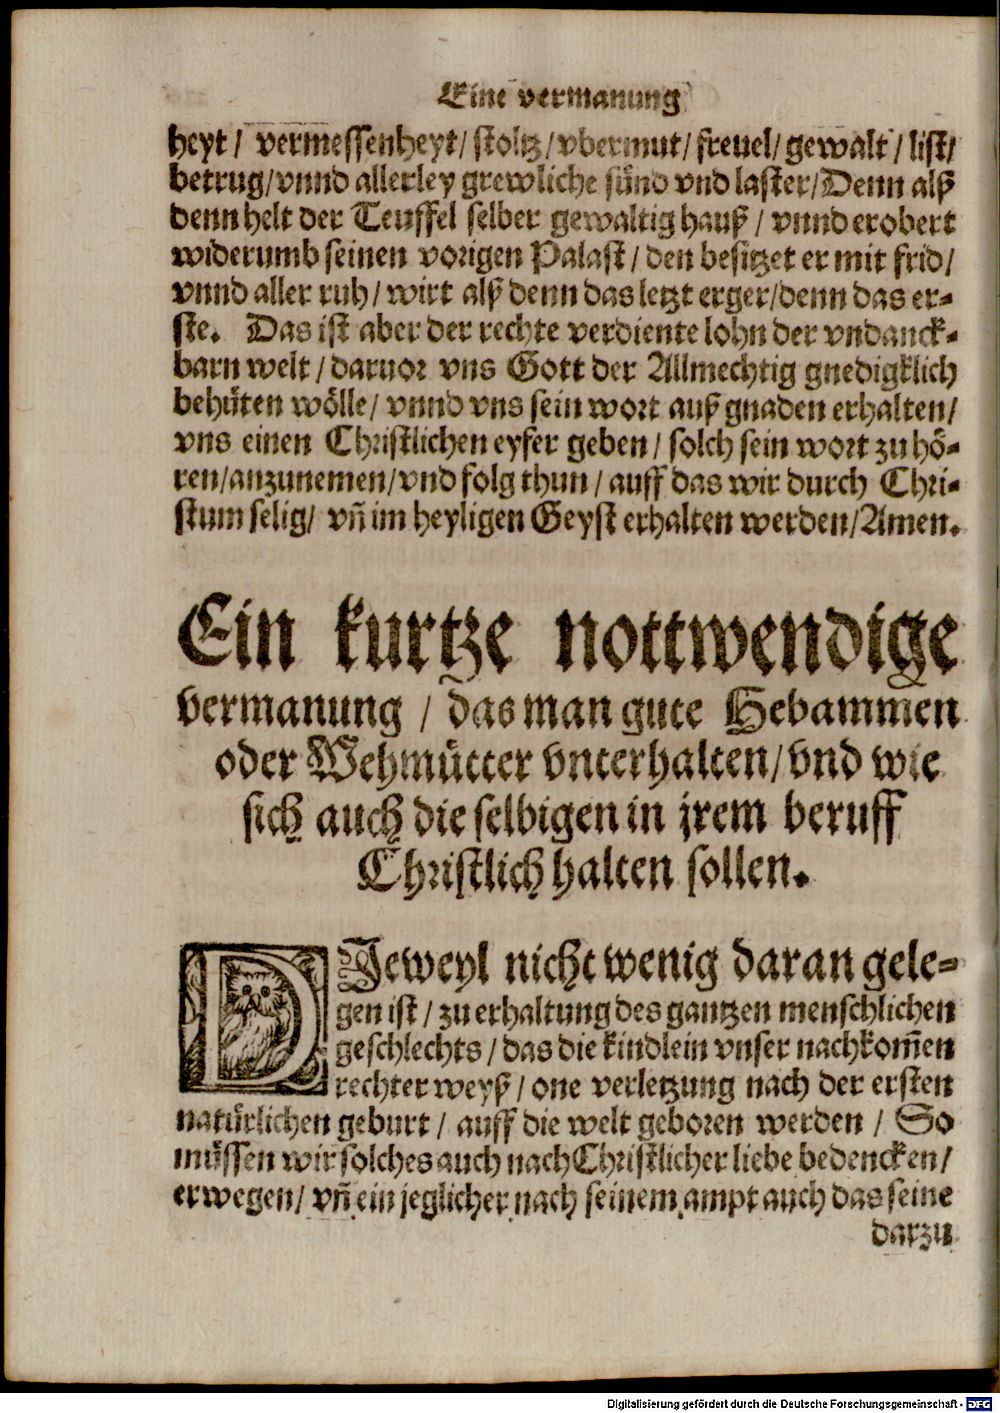 Eine vermanung
heyt / vermessenheyt / stoltz / vbermut / freuel / gewalt / list /
betrug / vnnd allerley grewliche sünd vnd laster / Denn alß
denn helt der Teuffel selber gewaltig hauß / vnnd erobert
widerumb seinen vorigen Palast / den besitzet er mit frid /
vnnd aller ruh / wirt alß denn das letzt erger / denn das er-
ste. Das ist aber der rechte verdiente lohn der vndanck-
barn welt / daruor vns Gott der Allmechtig gnedigklich
behüten wölle / vnnd vns sein wort auß gnaden erhalten /
vns einen Christlichen eyfer geben / solch sein wort zu hö-
ren / anzunemen / vnd folg thun / auff das wir durch Chri-
stum selig / vñ im heyligen Geyst erhalten werden / Amen.
Ein kurtze nottwendige
vermanung / das man gute Hebammen
oder Wehmütter vnterhalten / vnd wie
sich auch die selbigen in jrem beruff
Christlich halten sollen.
DJeweyl nicht wenig daran gele-
gen ist / zu erhaltung des gantzen menschlichen
geschlechts / das die kindlein vnser nachkom̃en
rechter weyß / one verletzung nach der ersten
natürlichen geburt / auff die welt geboren werden / So
müssen wir solches auch nach Christlicher liebe bedencken /
erwegen / vñ ein jeglicher nach seinem ampt auch das seine
darzu
Digitalisierung gefördert durch die Deutsche Forschungsgemeinschaft - DFG